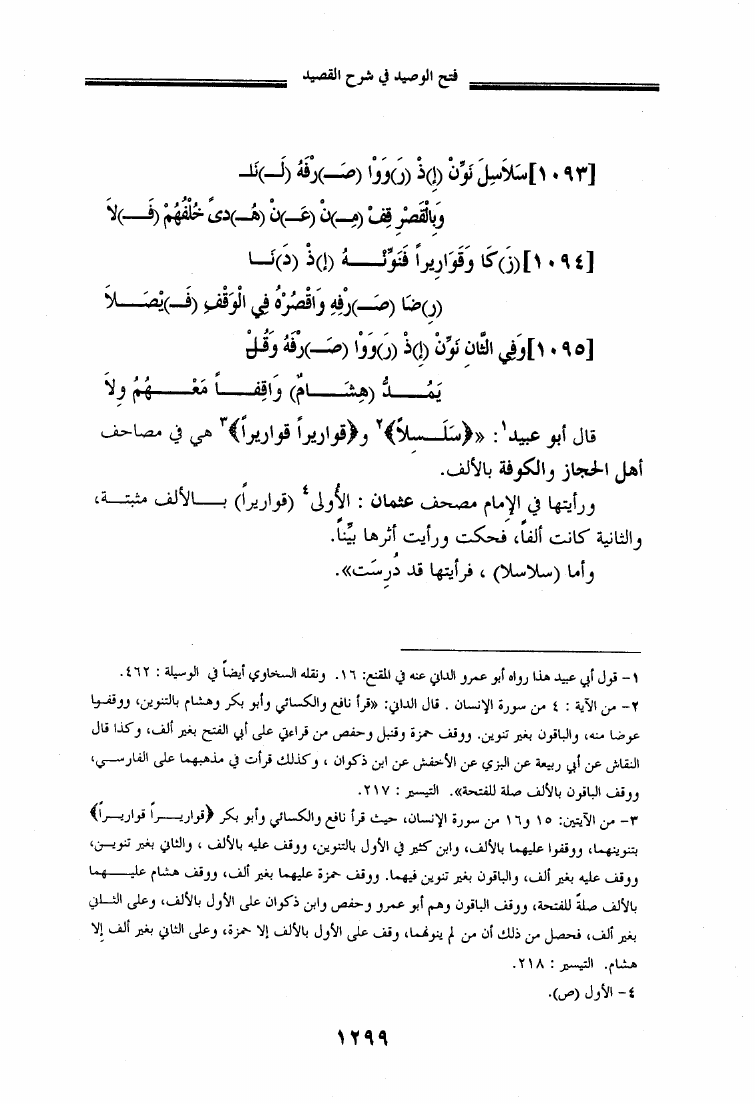 فتح الوصيد في شرح القصيد
[١٠٩٣] سَلاَسِلَ نَوِّنْ (إِ)ذْ (رَ)وَوْا (صَـ)ـرْفَهُ (لَـ)ـنَـا
وَبِالْقَصْرِ قِفْ (مِـ)ـنْ (عَـ)ـنْ (هُـ)ـدىً خُلْفُهُمْ (فَـ)ـلاَ
[١٠٩٤] (زَ)كَا وَقَوَارِيراً فَنَوِّنْـهُ (إِ)ذْ (دَ)نَـا
(رِ)ضَا (صَـ)ـرْفِهِ وَاقْصُرْهُ فِي الْوَقْفِ (فَـ)ـيْصَـلاَ
[١٠٩٥] وَفِي الثَّانِ نَوِّنْ (إِ)ذْ (رَ)وَوْا (صَـ)ـرْفَهُ وَقُـلْ
يَمُـدُّ (هِشَـامٌ) وَاقِفـاً مَعْـهُمُ وِلاَ
قال أبو عبيد١: «﴿سَلَـسِلاً﴾٢ و﴿قواريراً قواريراً﴾٣ هي في مصاحف
أهل الحجاز والكوفة بالألف.
ورأيتها في الإمام مصحف عثمان : الأُولى٤ (قواريراً) بـالألف مثبتـة،
والثانية كانت ألفاً، فحكت ورأيت أثرها بيِّناً.
وأما (سلاسلا) ، فرأيتها قد دُرِسَت».
١- قول أبي عبيد هذا رواه أبو عمرو الداني عنه في المقنع: ١٦. ونقله السخاوي أيضاً في الوسيلة : ٤٦٢.
٢- من الآية : ٤ من سورة الإنسان . قال الداني: «قرأ نافع والكسائي وأبو بكر وهشام بالتنوين، ووقفـوا
عوضا منه، والباقون بغير تنوين. ووقف حمزة وقنبل وحفص من قراءتي على أبي الفتح بغير ألف، وكذا قال
النقاش عن أبي ربيعة عن البزي عن الأخفش عن ابن ذكوان ، وكذلك قرأت في مذهبهما على الفارسـي،
ووقف الباقون بالألف صلة للفتحة». التيسير : ٢١٧.
٣- من الآيتين: ١٥ و١٦ من سورة الإنسان، حيث قرأ نافع والكسائي وأبو بكر ﴿قواريـراً قواريـراً﴾
بتنوينهما، ووقفوا عليهما بالألف، وابن كثير في الأول بالتنوين، ووقف عليه بالألف ، والثاني بغير تنويـن،
ووقف عليه بغير ألف، والباقون بغير تنوين فيهما. ووقف حمزة عليهما بغير ألف، ووقف هشام عليـهما
بالألف صلةً للفتحة، ووقف الباقون وهم أبو عمرو وحفص وابن ذكوان على الأول بالألف، وعلى الثـاني
بغير ألف، فحصل من ذلك أن من لم ينونهما، وقف على الأول بالألف إلا حمزة، وعلى الثاني بغير ألف إلا
هشام. التيسير : ٢١٨.
٤- الأول (ص).
١٢٩٩